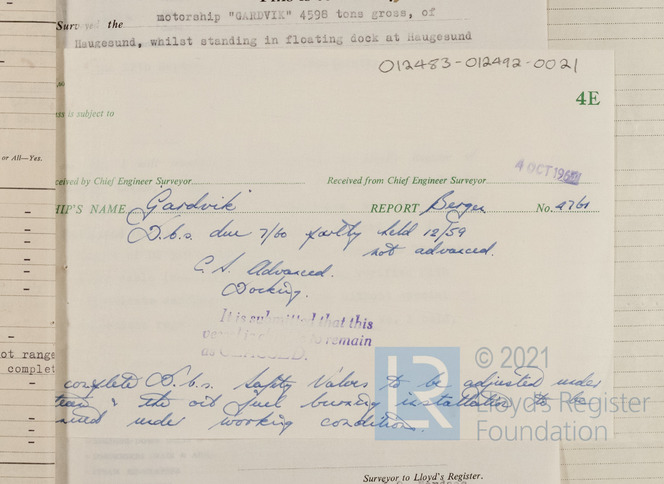 motorship "GARDVIK" 4598 tons gross, of
the
Haugesund, whilst standing in floating dock at Haugesund
012483-012492-0021
4E
is subject to
or All—Yes.
ceived by Chief Engineer Surveyor
Received from Chief Engineer Surveyor
4 OCT 196
IP'S NAME Gardvik REPORT Bergen No. 4761
D.b.s. due 7/60 partly held 12/59
not advanced.
C.S. Advanced.
Docking.
It is submitted that this
to remain
as CLASSED.
ot range
complet
complete D.b.s. Safety Valves to be adjusted under
steam & the oil fuel burning installation to be
under working condition.
LR
© 2021
Lloyd's Register
Foundation
Surveyor to Lloyd's Register.